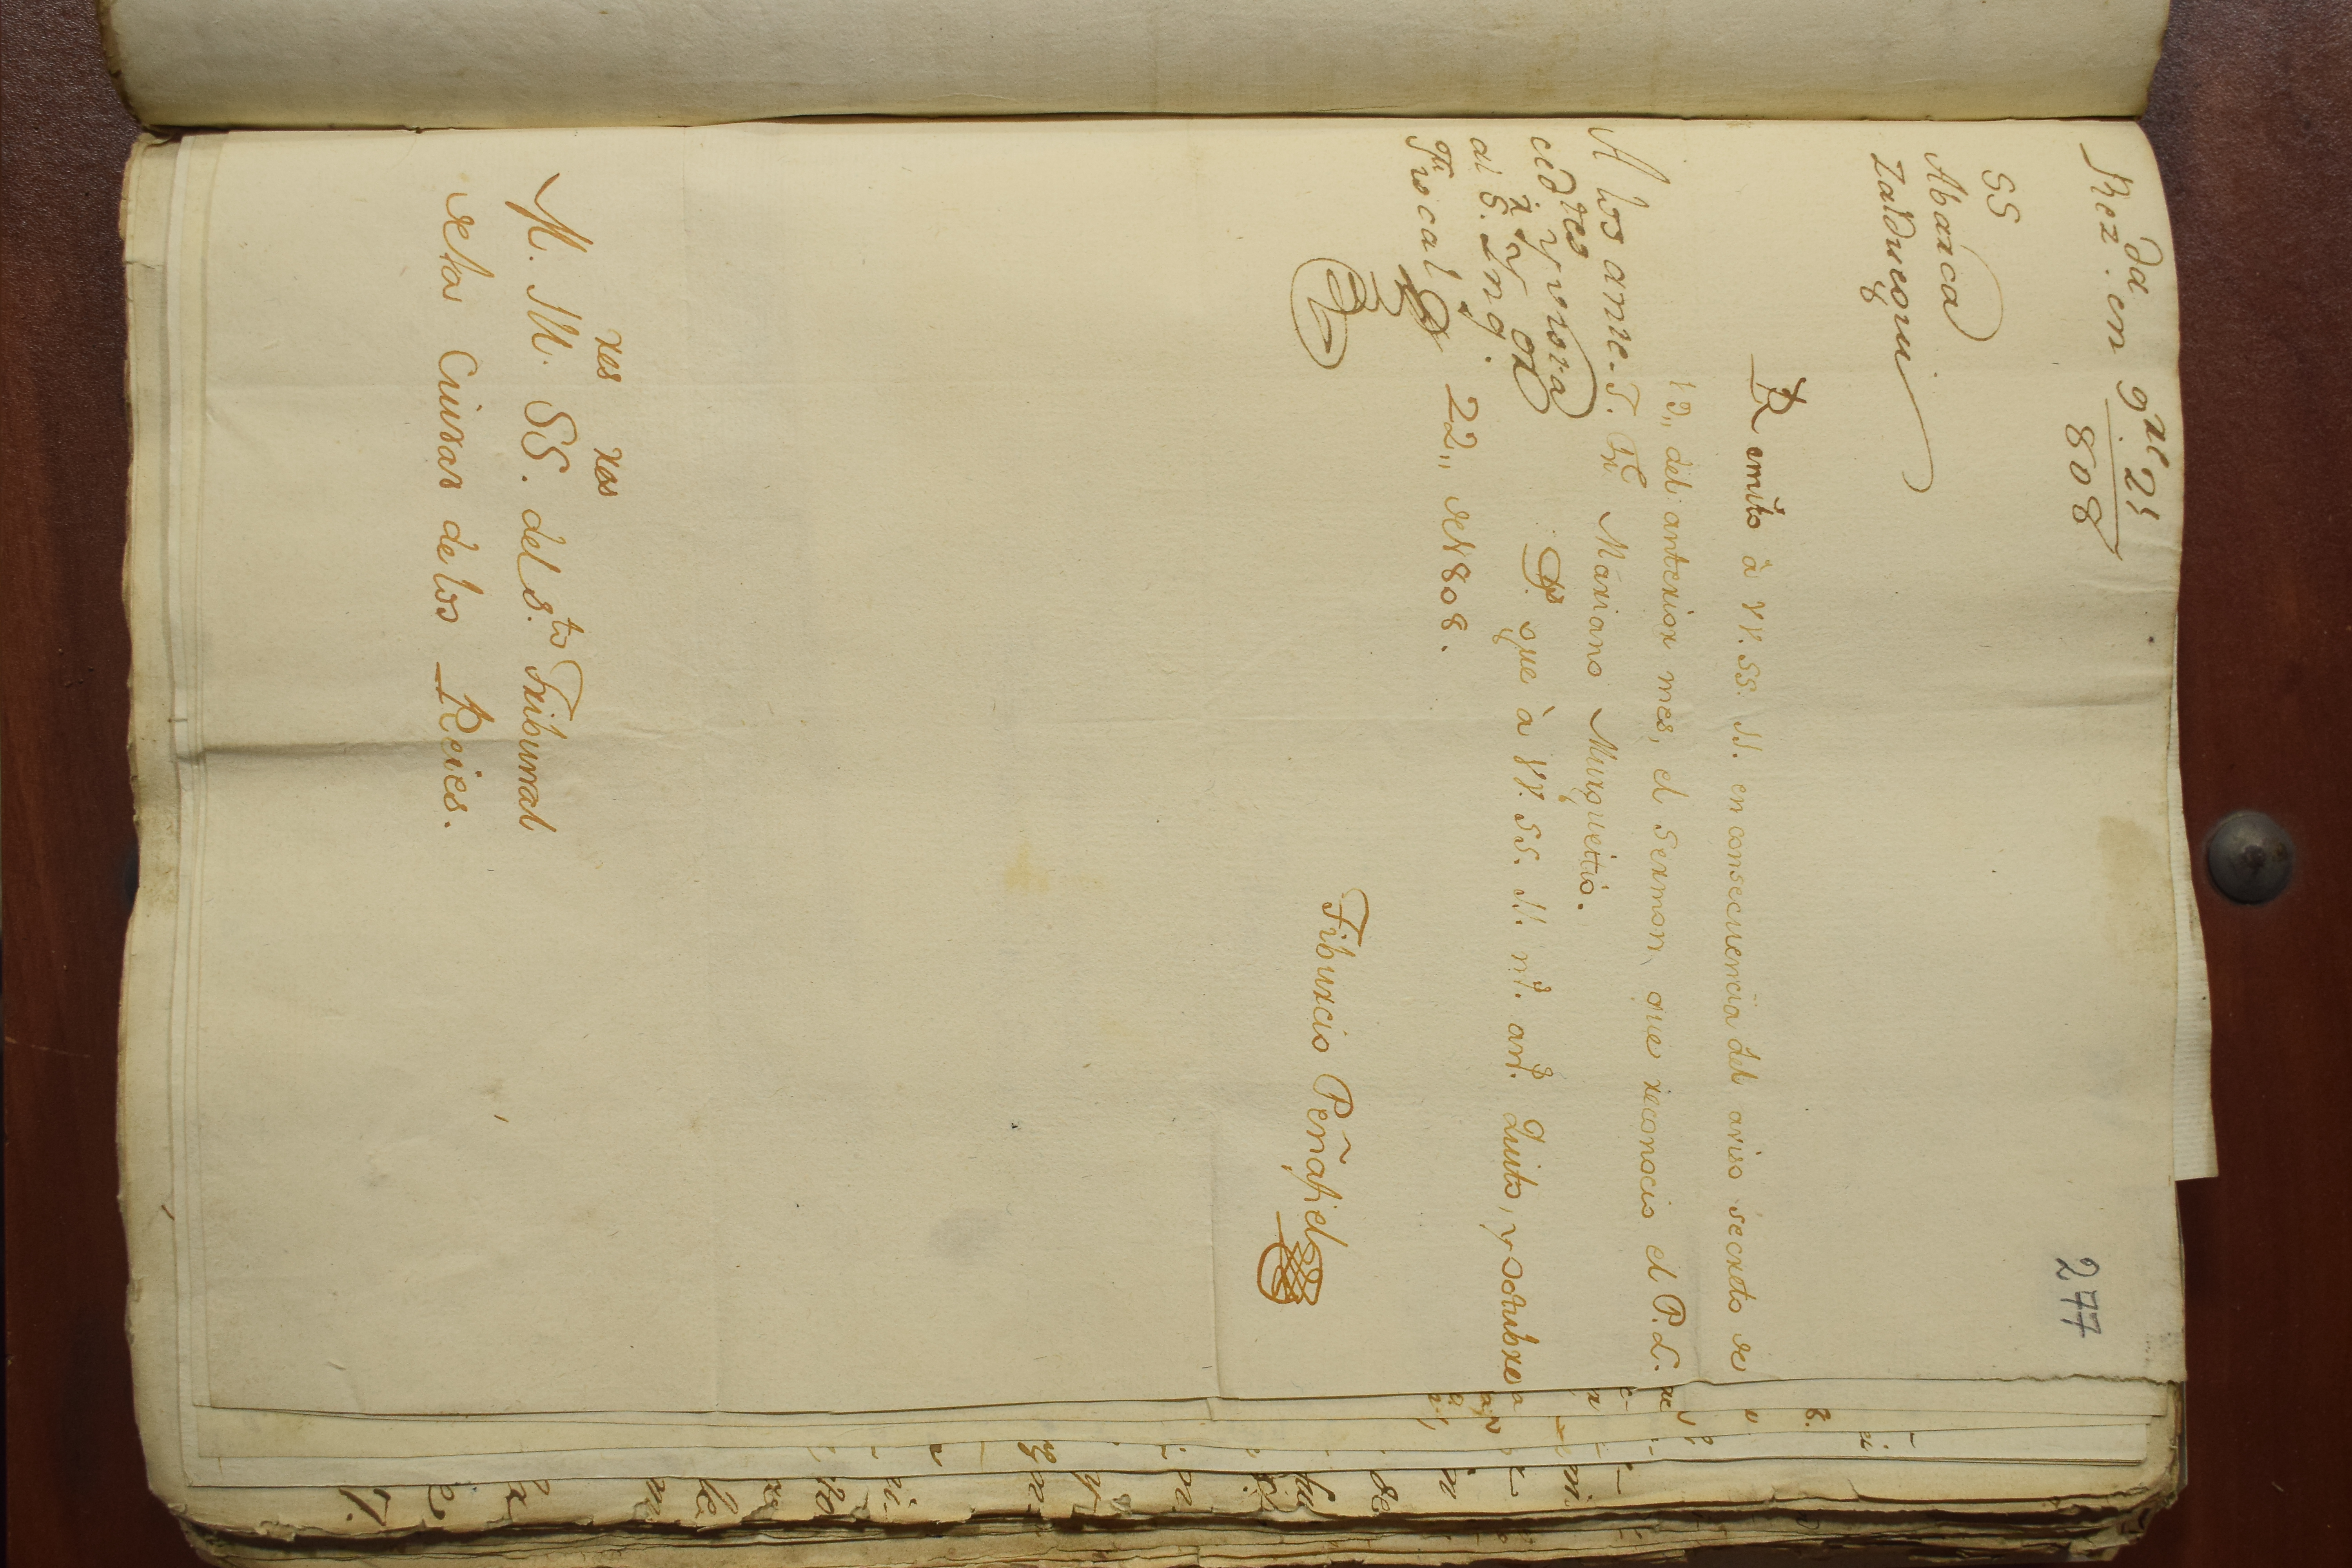 277
Rez.da en 9re 21
808
SS
Abarca
Zalduegui
Remito à VV. SS. Il. en consecuencia del aviso secreto de
19,, del anterior mes, el sermon, que reconocio el P. L.
F. Mariano Murgueitio.
A los antec-
edtes y vista
al S. Inq.or
Fiscal
D. gue à VV. SS. Il. m.s an.s Quito, y octubre
22,, de 1808.
Tiburcio Peñafiel
M. Il.res SS.res del S.to Tribunal
de la Ciudad de los Reies.